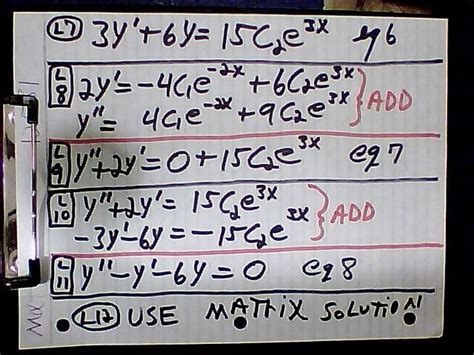 L7 3y' + 6y = 15C₂e^3x eq6
L8 2y' = -4C₁e^-2x + 6C₂e^3x } ADD
y'' = 4C₁e^-2x + 9C₂e^3x
L9 y'' + 2y' = 0 + 15C₂e^3x eq7
L10 y'' + 2y' = 15C₂e^3x } ADD
-3y' - 6y = -15C₂e^3x
L11 y'' - y' - 6y = 0 eq8
L12 USE MATRIX SOLUTION